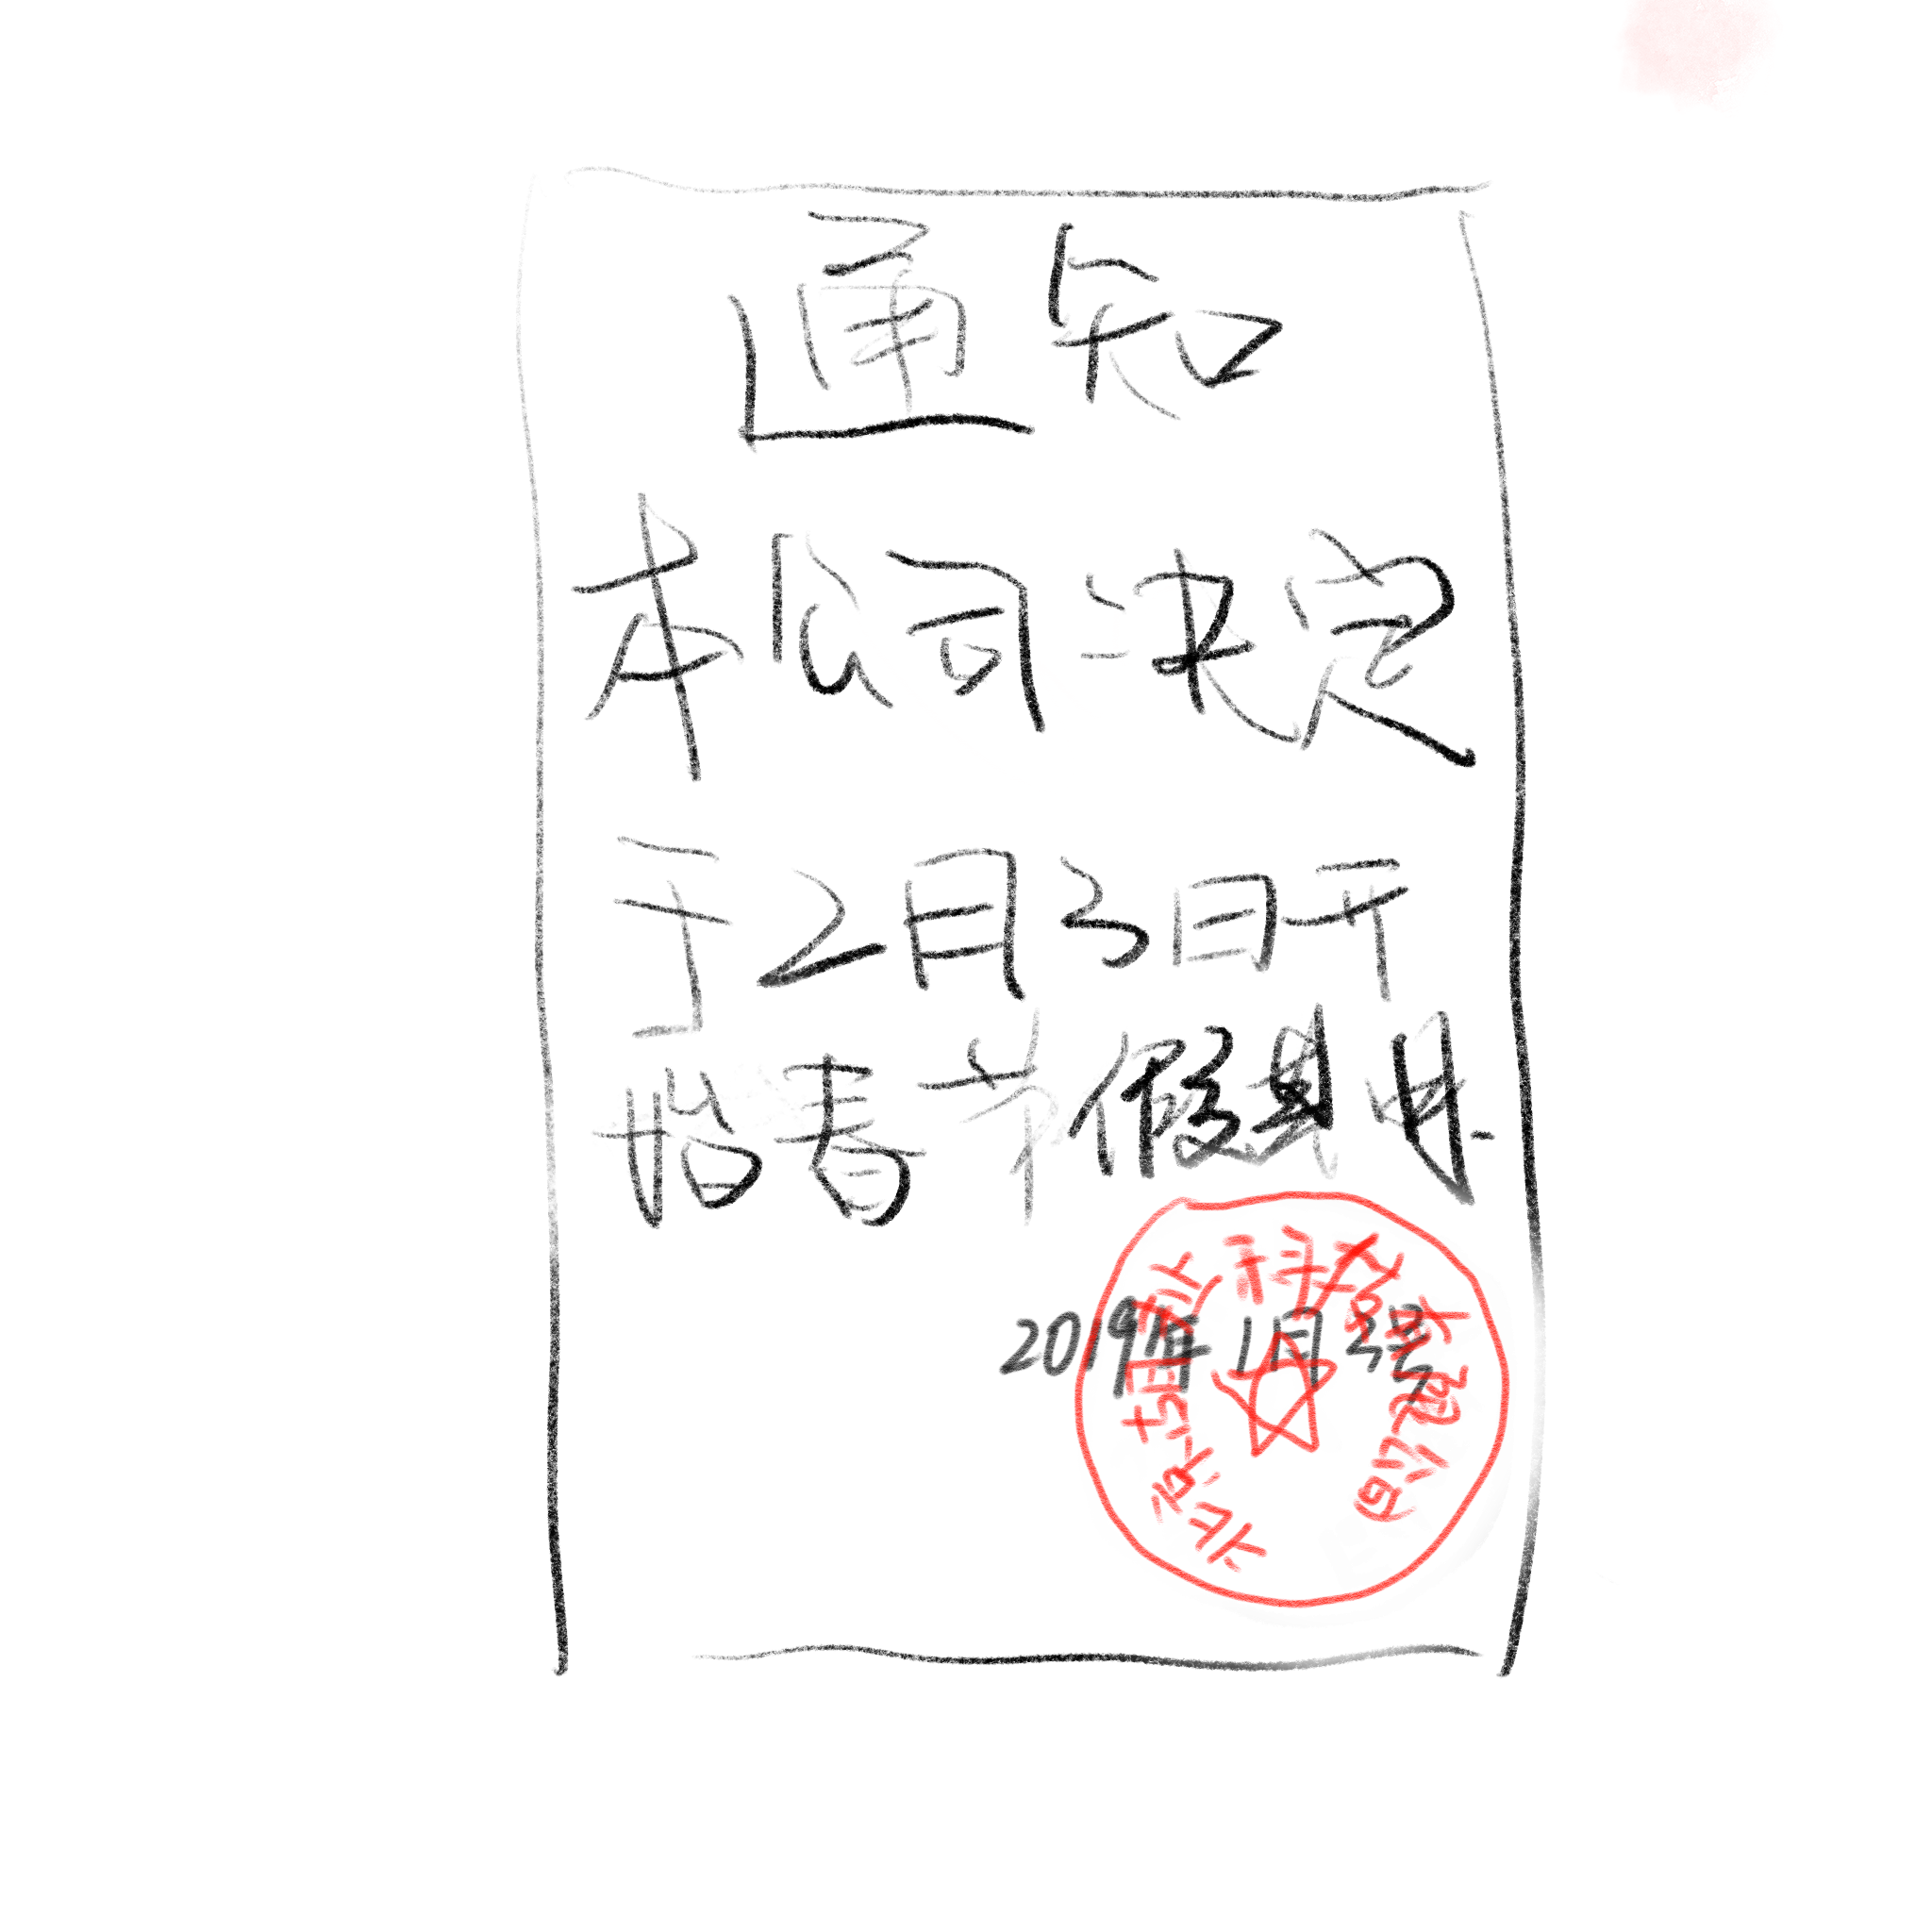 通知
本公司决定
于2月3日开
始春节假期
2019年1月3号
北京 科 有限公司